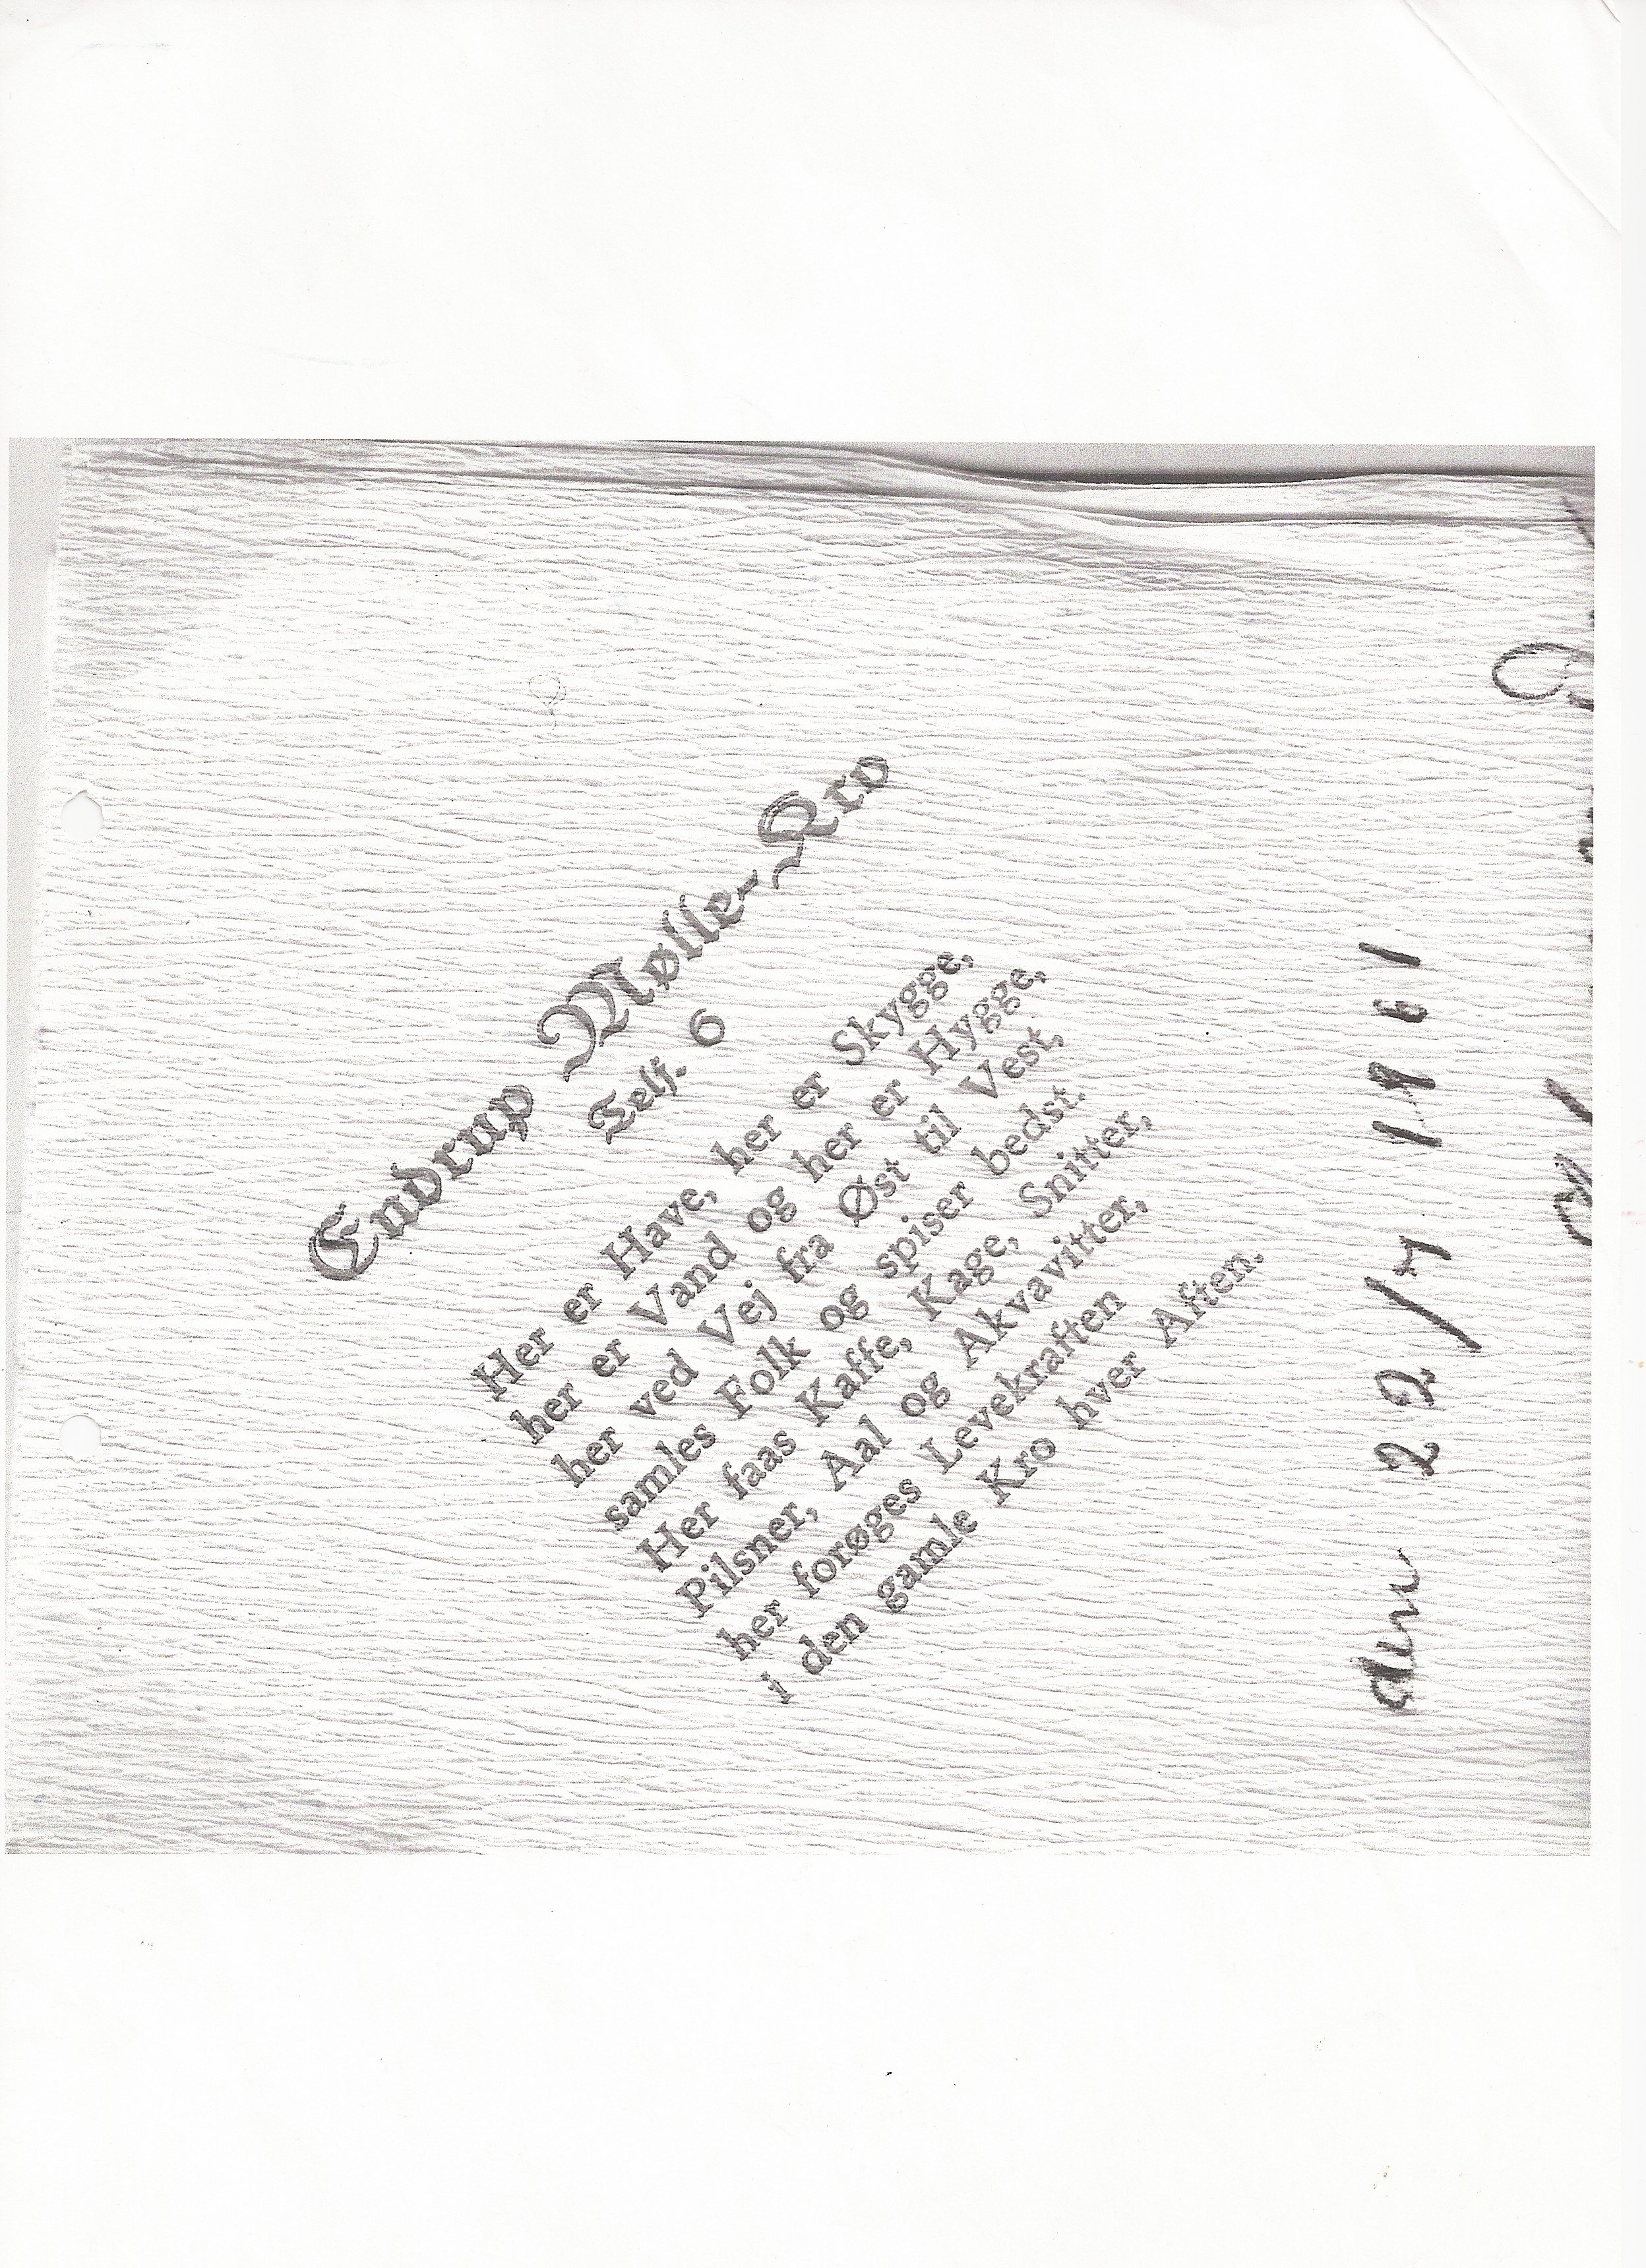 Endrup Mølle-Kro
Telf. 6
Her er Have, her er Skygge,
her er Vand og her er Hygge,
her ved Vej fra Øst til Vest,
samles Folk og spiser bedst.
Her faas Kaffe, Kage, Snitter,
Pilsner, Aal og Akvavitter,
her forøges Levekraften
i den gamle Kro hver Aften.
den 22/7 1961